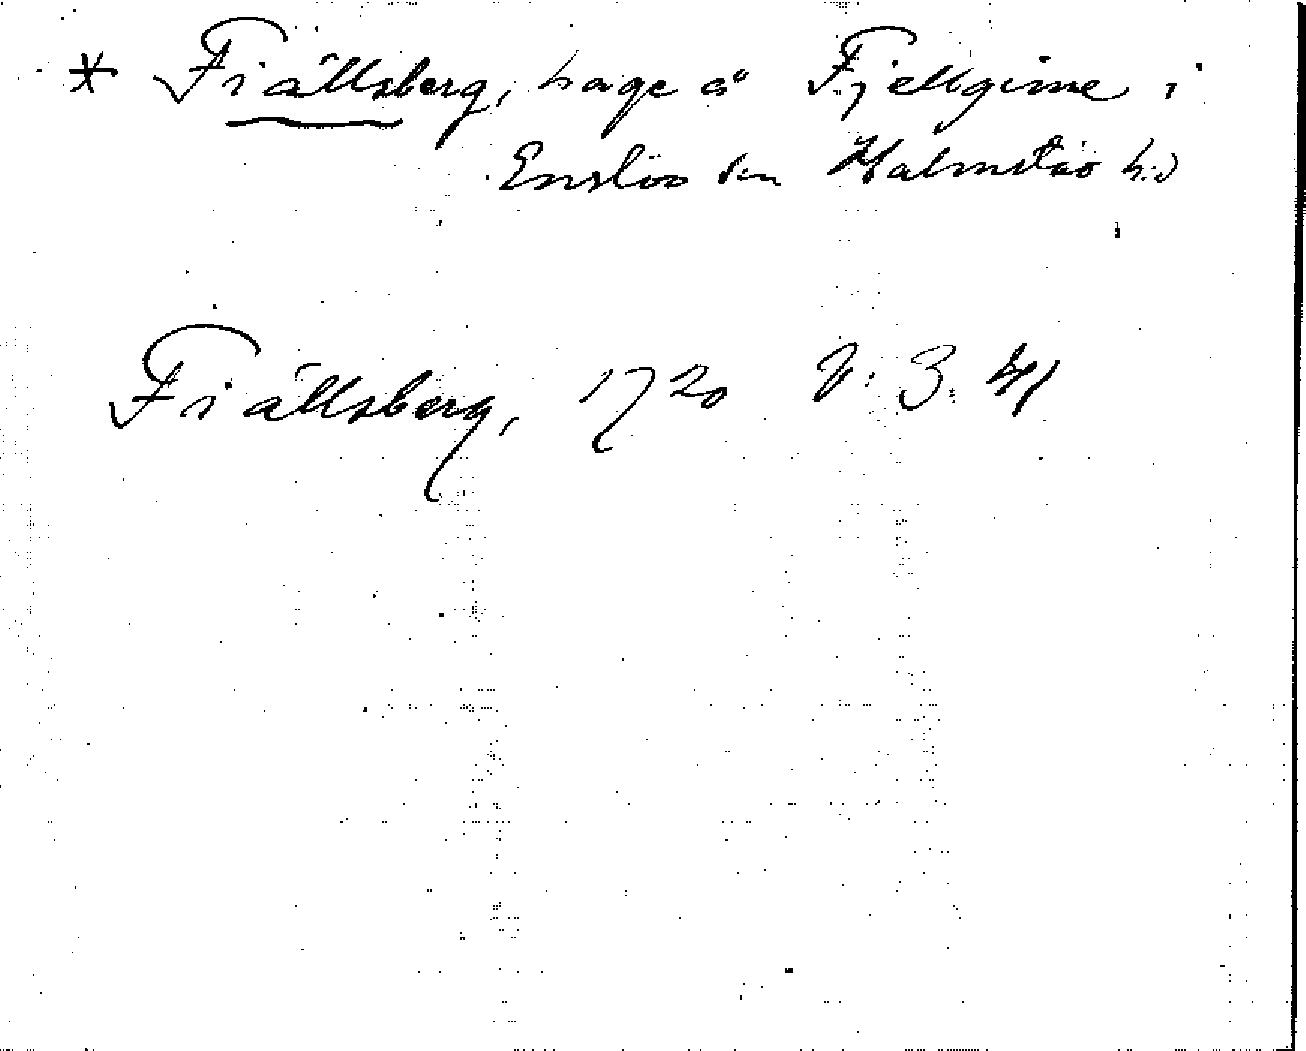 * Fiällsberg, hage å Fjellgime i
Enslöv sn Halmstad h:d
Fiällsberg, 1720 V: 3. 41